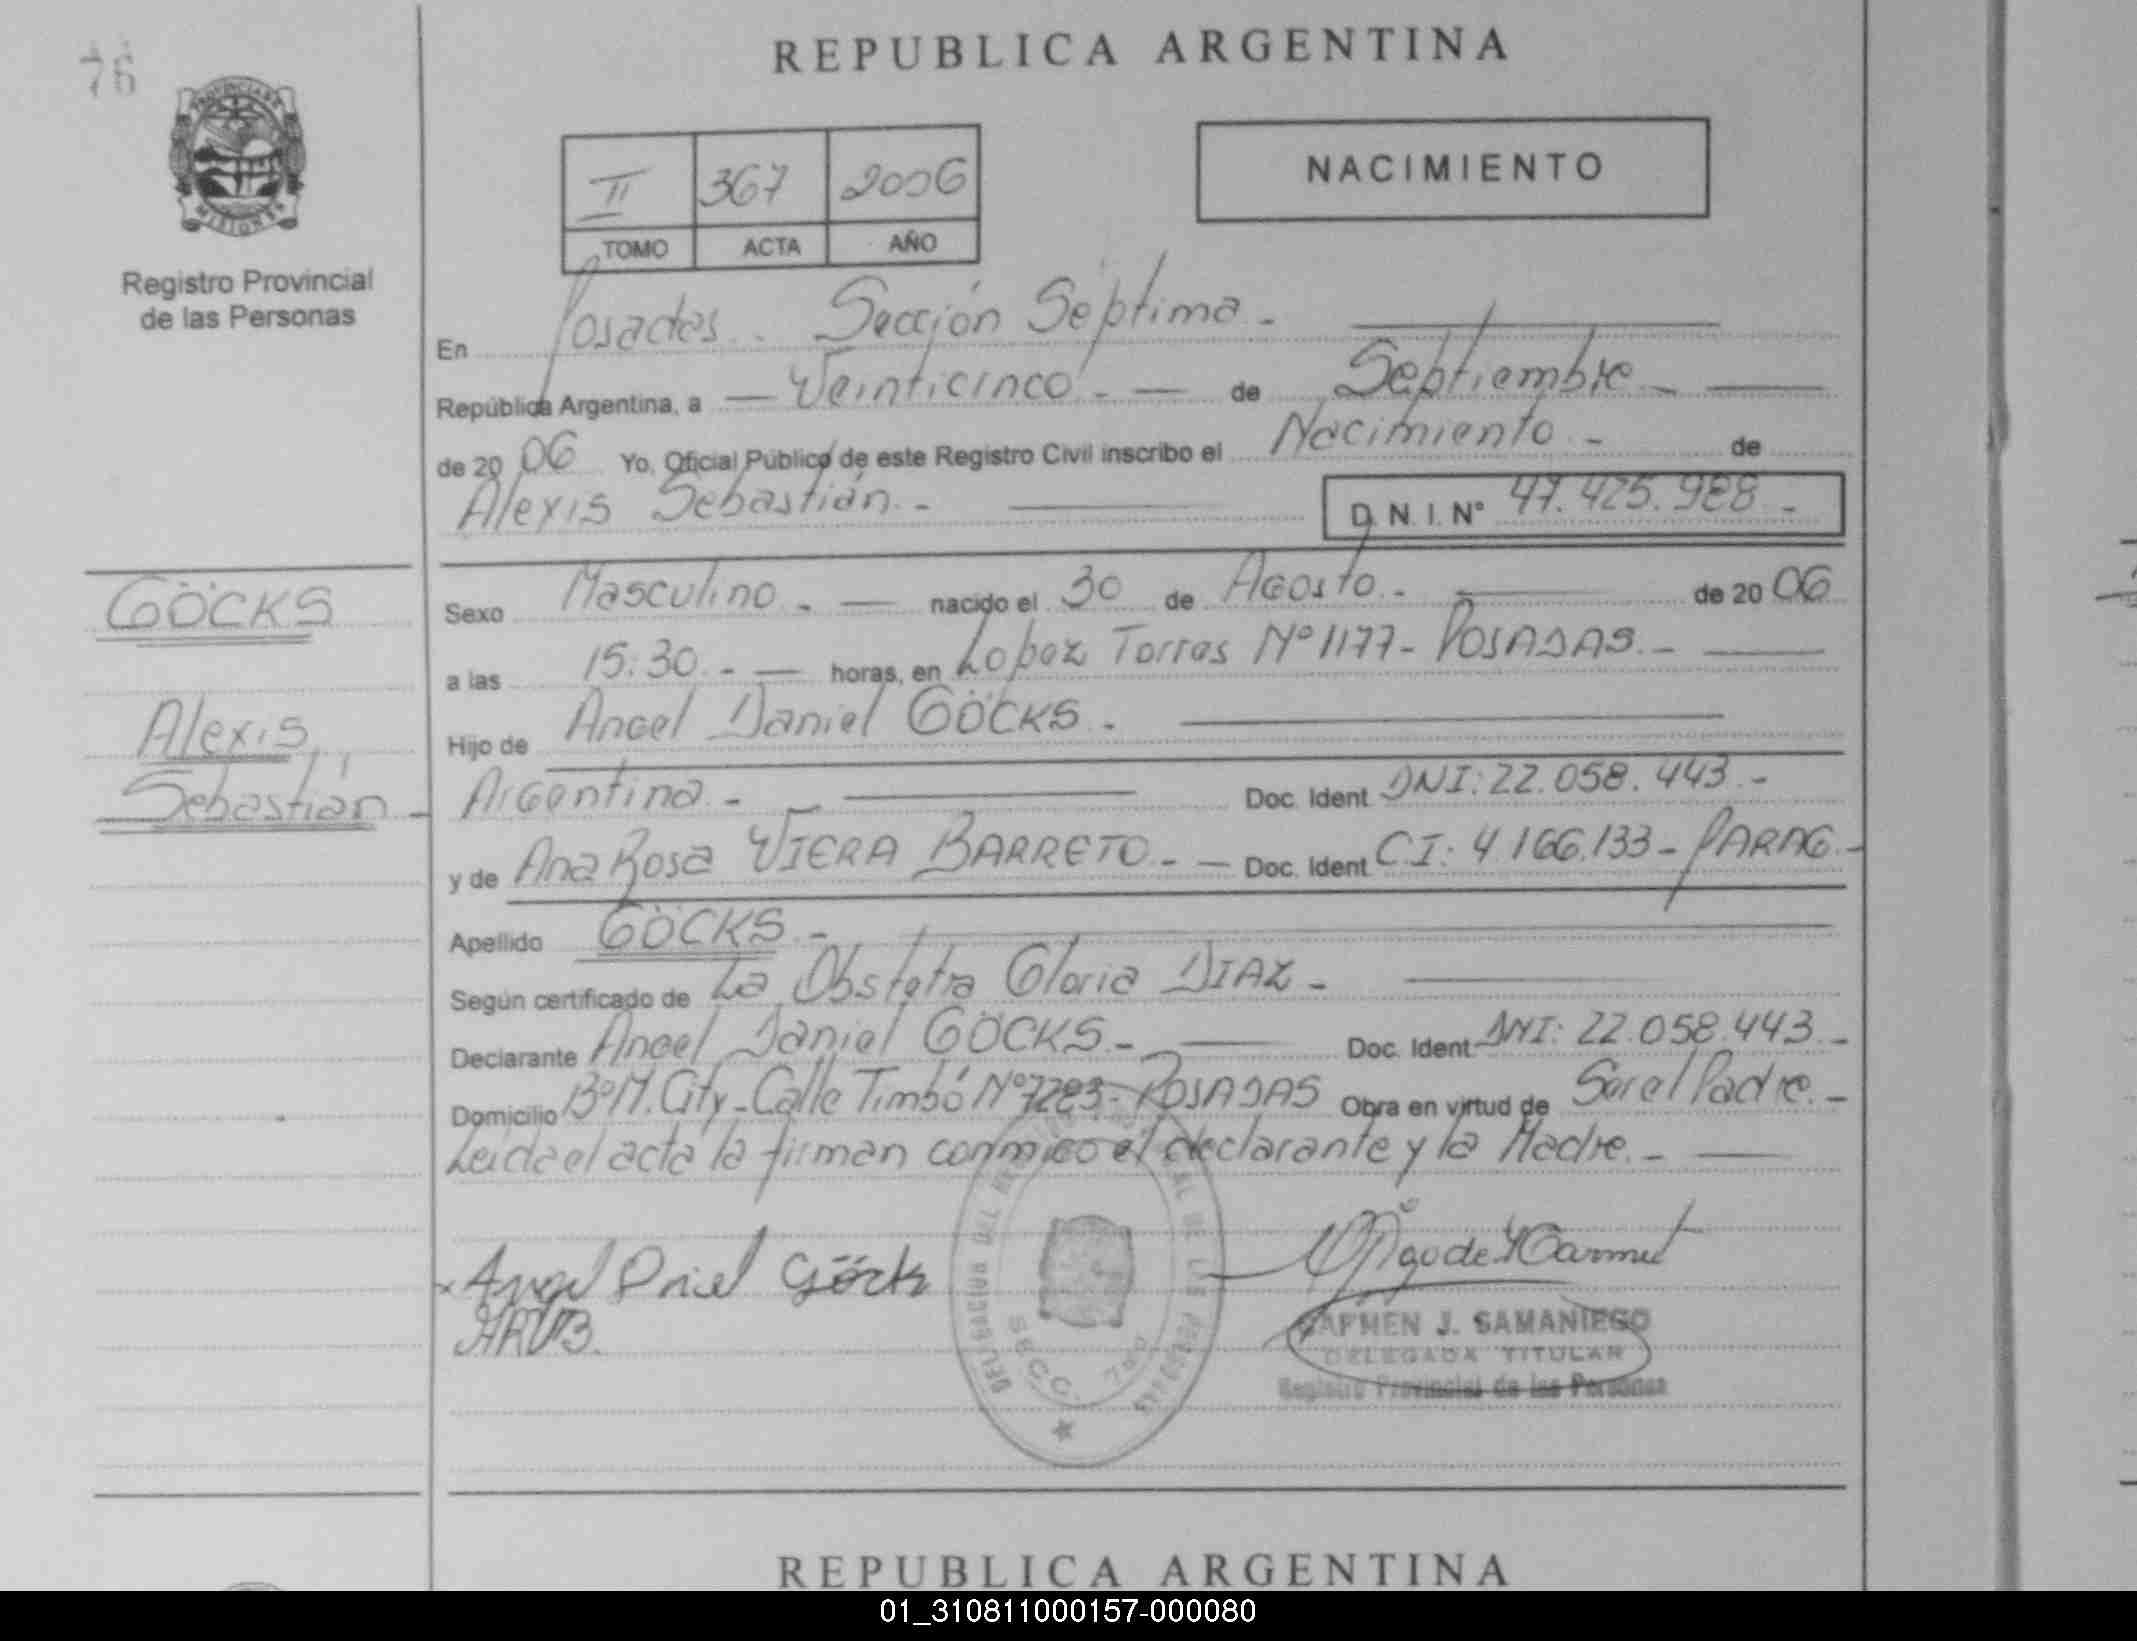 76
REPUBLICA ARGENTINA
PROVINCIA DE
MISIONES
Registro Provincial
de las Personas
II 367 2006
TOMO ACTA AÑO
NACIMIENTO
En Posadas - Sección Séptima -
República Argentina, a — Veinticinco - — de Septiembre - —
de 20 06 Yo, Oficial Público de este Registro Civil inscribo el Nacimiento - de
Alexis Sebastián - — D. N. I. N° 47.425.988 -
GÖCKS
Alexis
Sebastián -
Sexo Masculino - — nacido el 30 de Agosto - — de 20 06
a las 15:30 - — horas, en Lopez Torres N° 1177 - POSADAS - —
Hijo de Angel Daniel GÖCKS - —
Argentina - — Doc. Ident DNI: 22.058.443 -
y de Ana Rosa VIERA BARRETO - — Doc. Ident C.I: 4.166.133 - PARAG -
Apellido GÖCKS - —
Según certificado de La Obstetra Gloria DIAZ - —
Declarante Angel Daniel GÖCKS - — Doc. Ident DNI: 22.058.443 -
Domicilio B° M. City - Calle Timbó N° 7283 - POSADAS Obra en virtud de Ser el Padre -
Leida el acta la firman conmigo el declarante y la Madre - —
x Angel Dniel Göcks
ARVB.
DELEGACION DEL DE LAS PERSONAS
SECC. 7ma
CARMEN J. SAMANIEGO
DELEGADA TITULAR
Registro Provincial de las Personas
REPUBLICA ARGENTINA
01_310811000157-000080